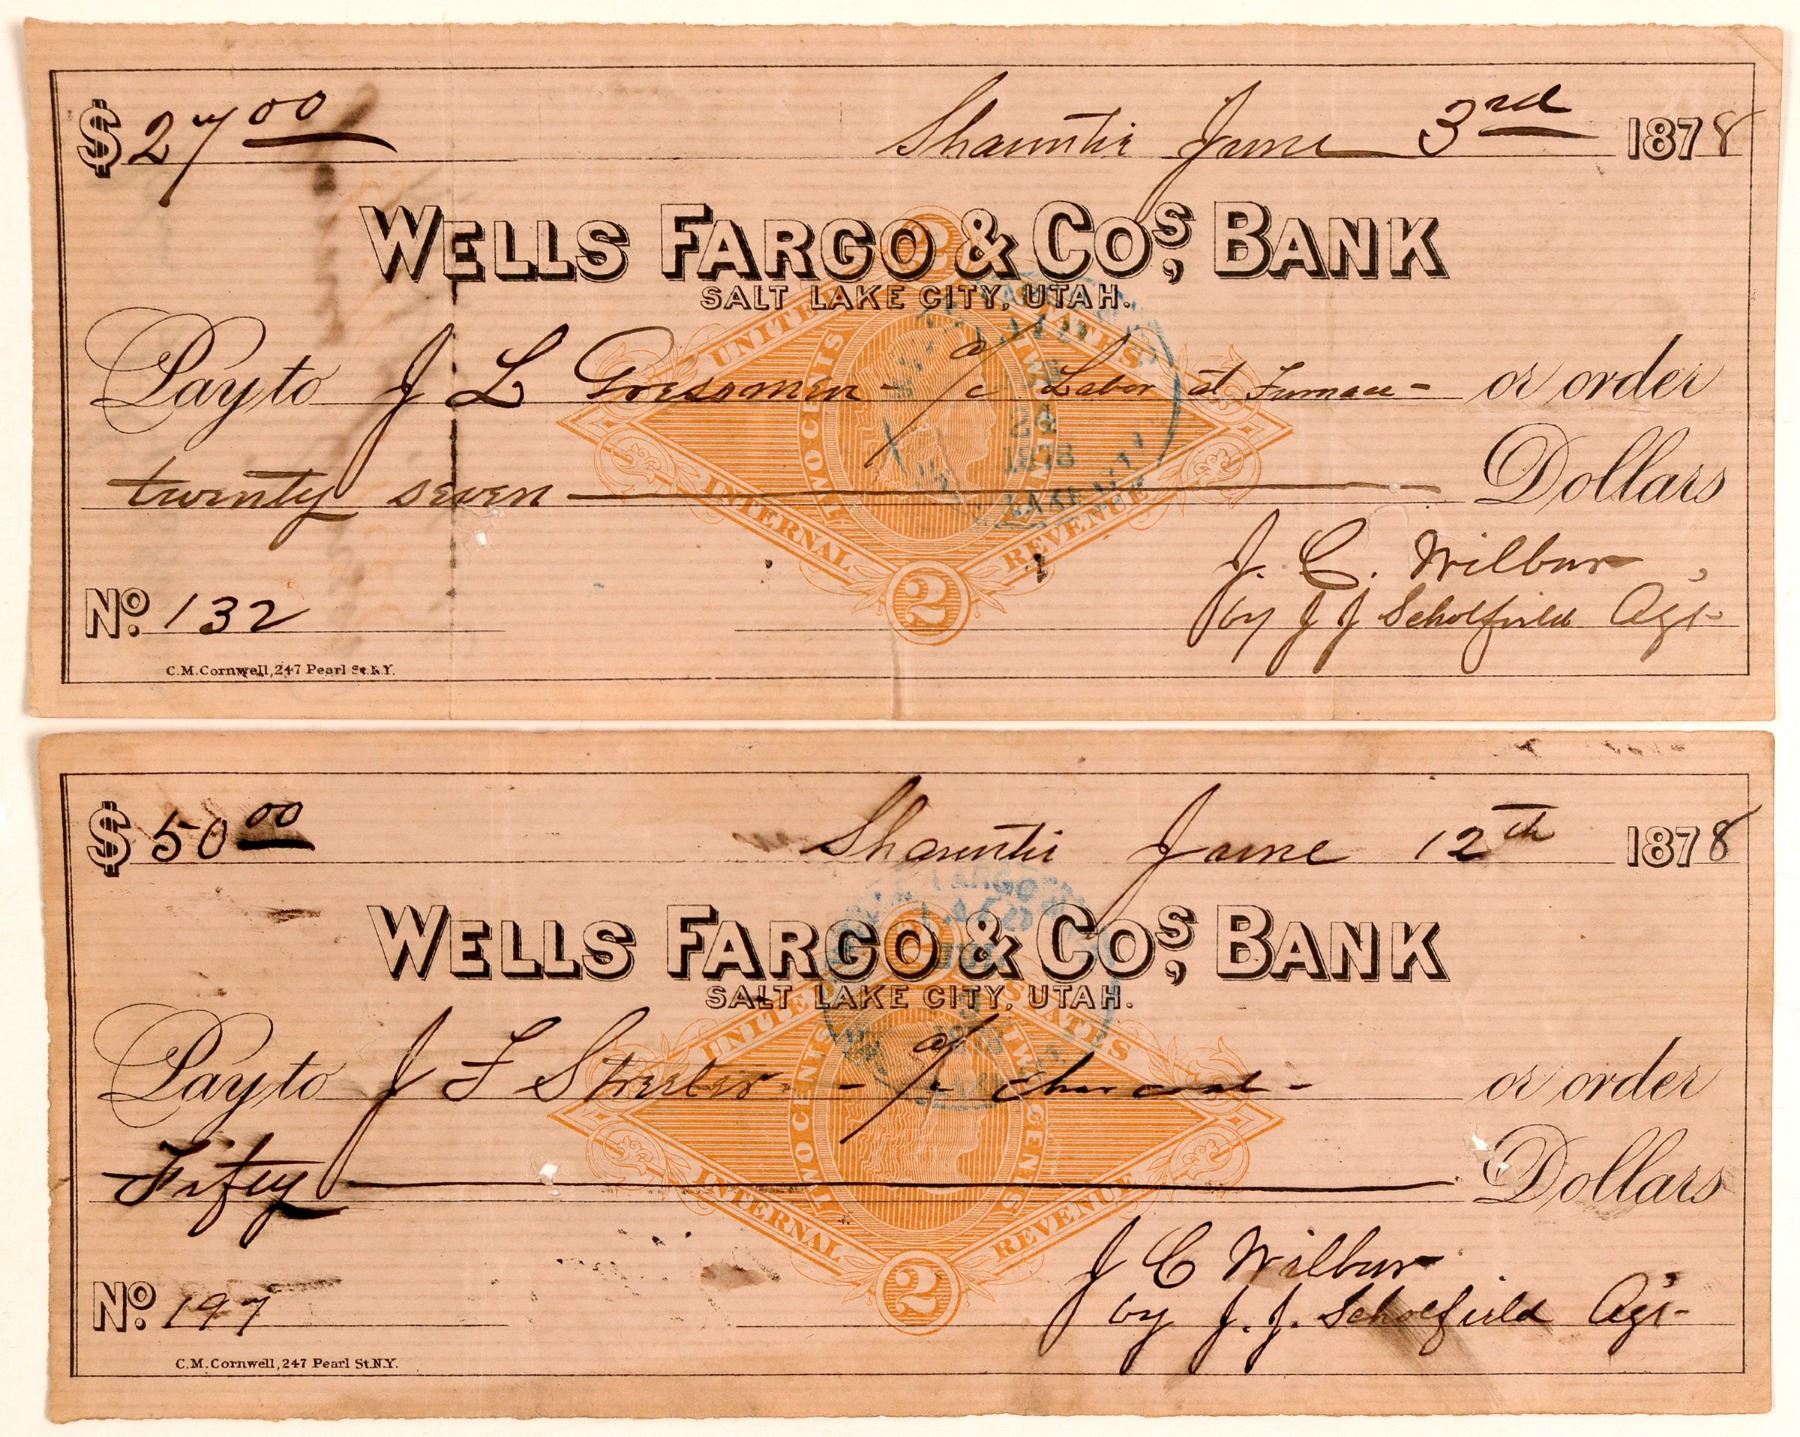 $ 27 00 Shauntie June 3rd 1878
WELLS FARGO & COS, BANK
SALT LAKE CITY, UTAH.
UNITED STATES
Pay to J L Gressmen - a/c Labor at Furnace - or order
TWO CENTS TWO CENTS
24
1878
twenty seven Dollars
INTERNAL REVENUE
LAKE CITY
J. C. Wilbur,
2
No. 132 by J J Scholfield Agt-
C.M. Cornwell, 247 Pearl St. N.Y.
$ 50 00 Shauntie June 12th 1878
WELLS FARGO & COS, BANK
SALT LAKE CITY, UTAH.
UNITED STATES
Pay to J F Streeter - a/c charcoal - or order
TWO CENTS TWO CENTS
Fifty Dollars
INTERNAL REVENUE
J C Wilbur
2
No. 197 by J. J. Scholfield Agt-
C.M. Cornwell, 247 Pearl St. N.Y.